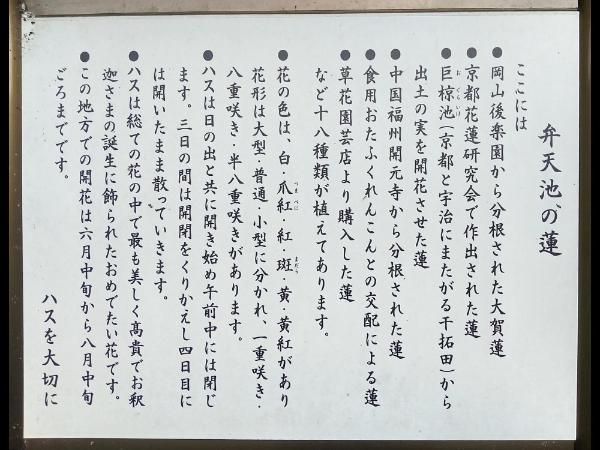 弁天池の蓮
ここには
●岡山後楽園から分根された大賀蓮
●京都花蓮研究会で作出された蓮
●巨椋池(京都と宇治にまたがる干拓田)から
出土の実を開花させた蓮
●中国福州開元寺から分根された蓮
●食用おたふくれんこんとの交配による蓮
●草花園芸店より購入した蓮
など十八種類が植えてあります。
●花の色は、白・爪紅・紅・斑・黄・黄紅があり
花形は大型・普通・小型に分かれ、一重咲き・
八重咲き・半八重咲きがあります。
●ハスは日の出と共に開き始め午前中には閉じ
ます。三日の間は開閉をくりかえし四日目に
は開いたまま散っていきます。
●ハスは総ての花の中で最も美しく高貴でお釈
迦さまの誕生に飾られたおめでたい花です。
●この地方での開花は六月中旬から八月中旬
ごろまでです。
ハスを大切に